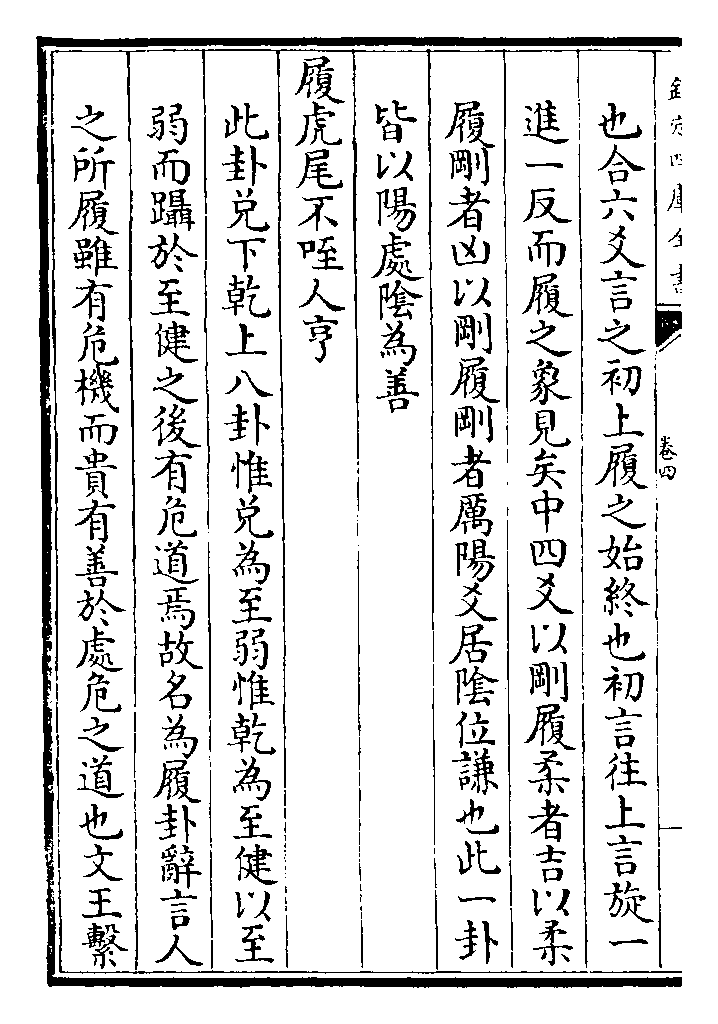 欽定四庫全書
卷四
也合六爻言之初上履之始終也初言往上言旋一
進一反而履之象見矣中四爻以剛履柔者吉以柔
履剛者凶以剛履剛者厲陽爻居隂位謙也此一卦
皆以陽處隂為善
履虎尾不咥人亨
此卦兌下乾上八卦惟兌為至弱惟乾為至健以至
弱而躡於至健之後有危道焉故名為履卦辭言人
之所履雖有危機而貴有善於處危之道也文王繫